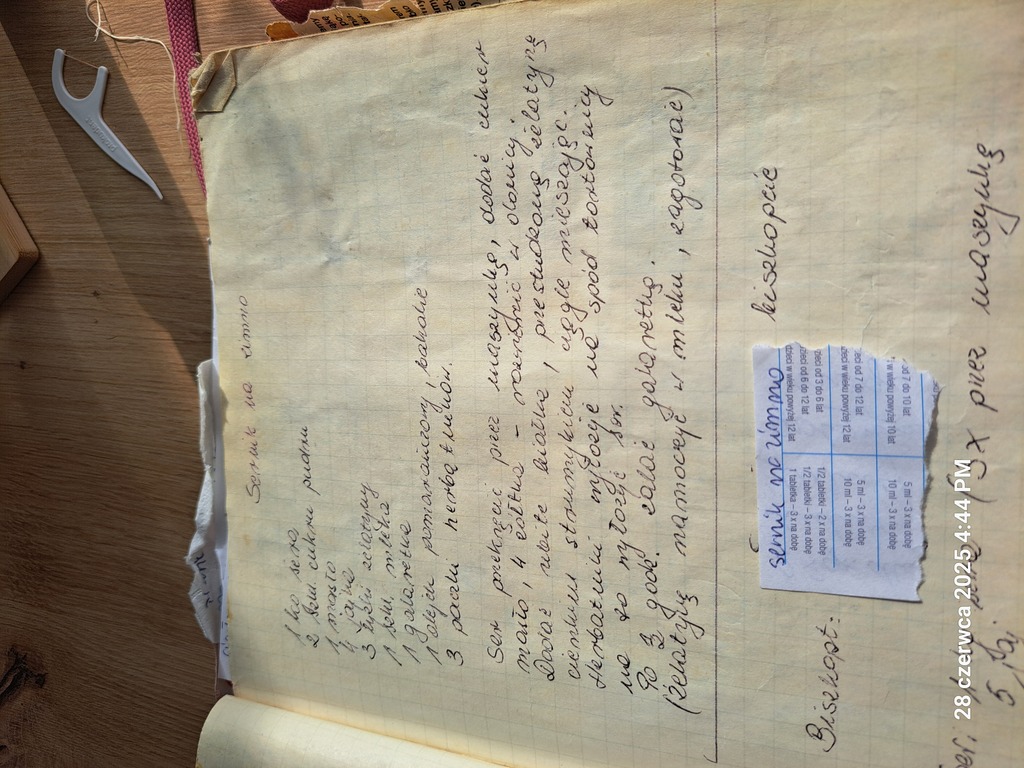 Sernik na zimno
1 kg sera
2 szkl. cukru pudru
1 masło
4 jajka
3 łyżki żelatyny
1 szkl. mleka
1 galaretka
1 olejek pomarańczowy, bakalie
3 paczki herbatników.
Ser przekręcić przez maszynkę, dodać cukier
masło, 4 żółtka - rozrobić w donicy.
Dodać ubite białka, przestudzoną żelatynę
cienkim strumykiem, ciągle mieszając.
Herbatniki wyłożyć na spód tortownicy
na to wyłożyć ser.
Po 3 godz. zalać galaretką.
(Żelatynę namoczyć w mleku, zagotować)
biszkopcie
Biszkopt:
sernik na zimno
dzieci w wieku powyżej 12 lat
1 tabletka – 3 x na dobę
dzieci od 6 do 12 lat
1/2 tabletki – 2 x na dobę
dzieci od 3 do 6 lat
1/2 tabletki – 3 x na dobę
w wieku powyżej 12 lat
10 ml – 3 x na dobę
od 7 do 12 lat
5 ml – 3 x na dobę
w wieku powyżej 10 lat
10 ml – 3 x na dobę
od 7 do 10 lat
5 ml – 3 x na dobę
(3x przez maszynkę
5 jaj
28 czerwca 2025 4:44 PM